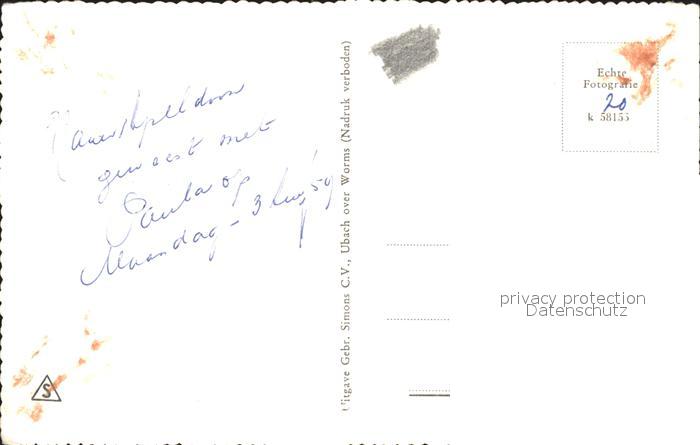 Naar Apeldoorn
geweest met
Paula op
Maandag - 3 Aug. '59
Uitgave Gebr. Simons C.V., Ubach over Worms (Nadruk verboden)
Echte
Fotografie
20
k 58153
privacy protection
Datenschutz
S